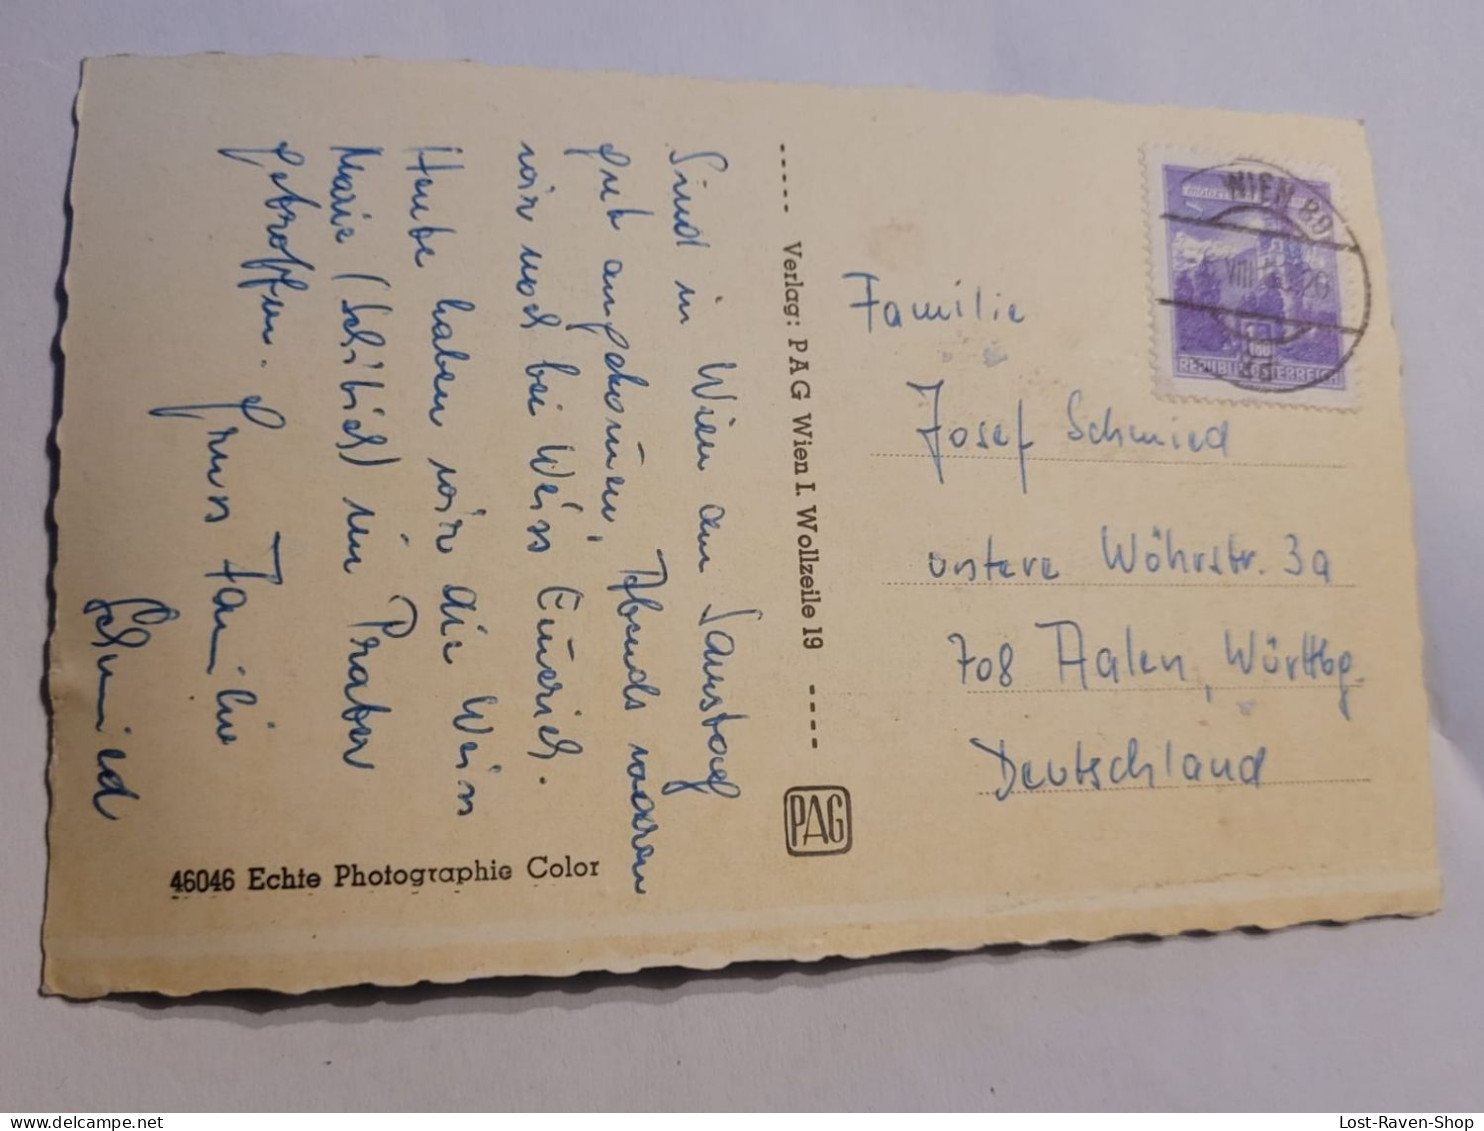 Sind in Wien am Samstag
gut angekommen, Abends waren
wir noch bei Weiss Heinrich.
Heute haben wir die Weiss
Marie (Schibich) im Prater
getroffen. Gruss Familie
Schmied
46046 Echte Photographie Color
Verlag: PAG Wien I. Wollzeile 19
PAG
WIEN 89
VIII
REPUBLIK ÖSTERREICH
Familie
Josef Schmied
untere Wöhrstr. 3a
708 Aalen, Württbg.
Deutschland
Lost-Raven-Shop